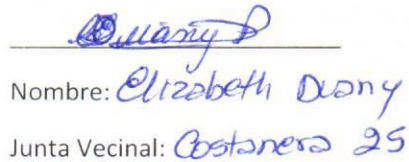 Nombre: Elizabeth Duany
Junta Vecinal: Costanera 25